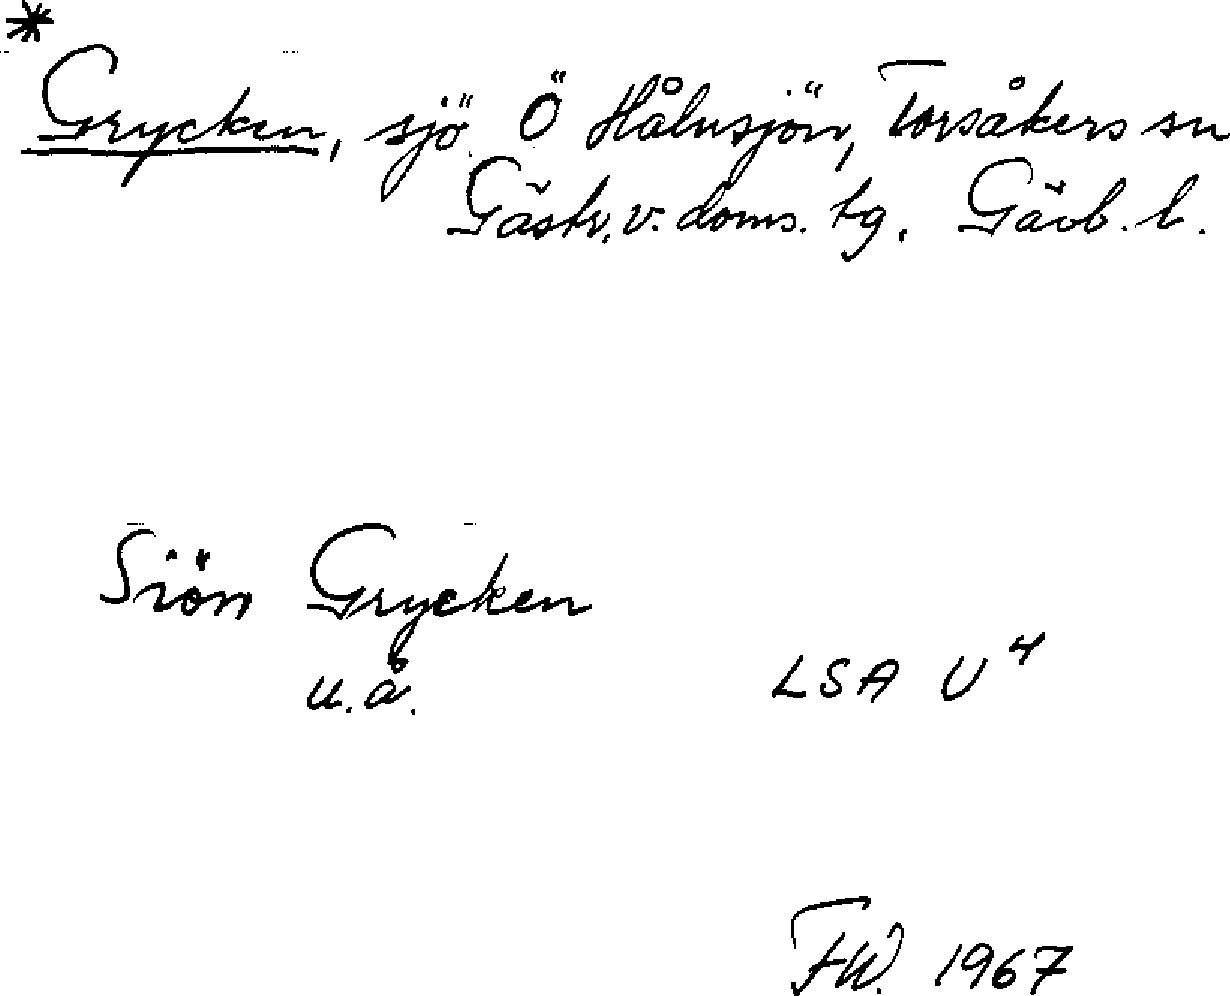 *
Grycken, sjö Ö Hålnsjön, Torsåkers sn
Gästr. v. doms. tg. Gävl. l.
Siön Grycken
u.å. LSA U⁴
FW. 1967